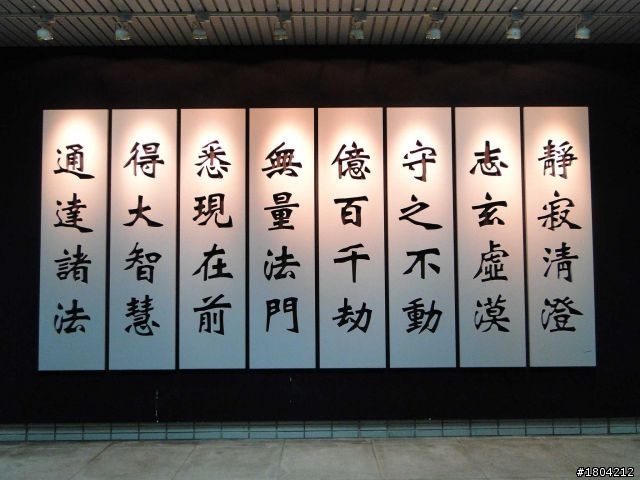 靜寂清澄
志玄虛漠
守之不動
億百千劫
無量法門
悉現在前
得大智慧
通達諸法
#1804212